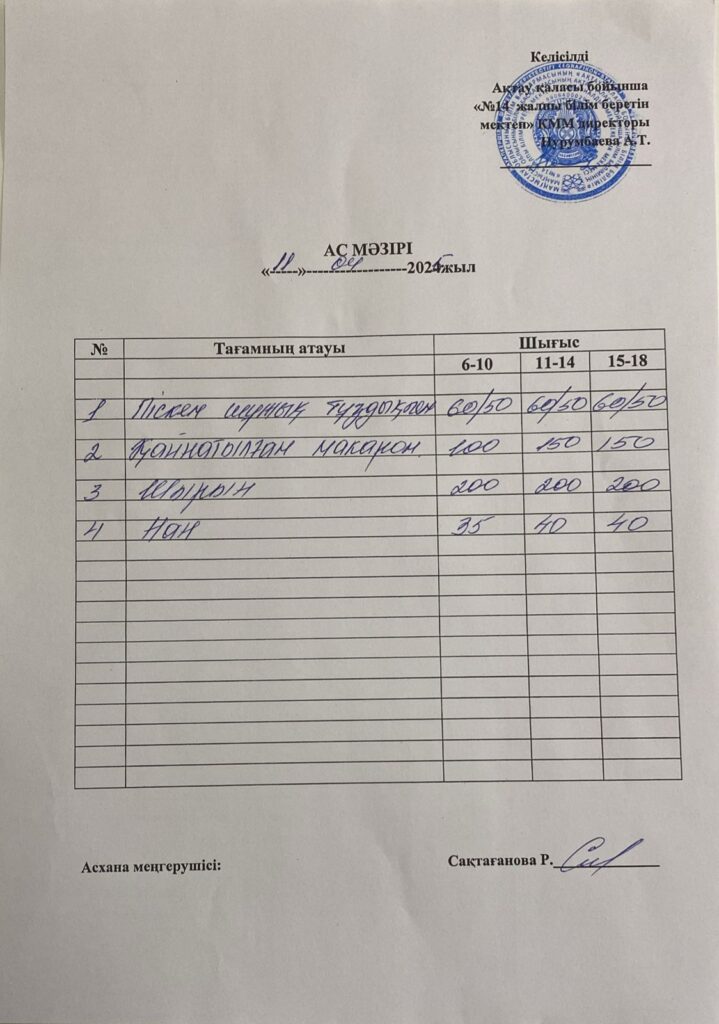 Келісілді
Ақтау қаласы бойынша
«№14 жалпы білім беретін
мектеп» КММ директоры
Нурумбаева А.Т.
АС МӘЗІРІ
«--11---»-------04-------------2025жыл
№ Тағамның атауы Шығыс
6-10 11-14 15-18
1 Піскен шұжық тұздықпен 60/50 60/50 60/50
2 Қайнатылған макарон. 100 150 150
3 Шырын 200 200 200
4 Нан 35 40 40
Асхана меңгерушісі: Сақтағанова Р.